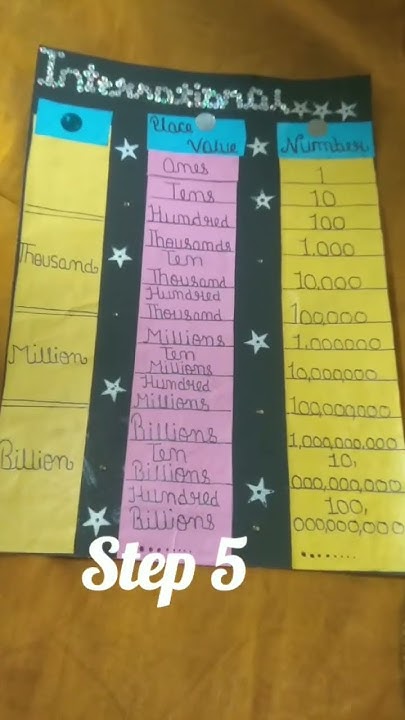 International
Thousand
Million
Billion
Place
Value
Ones
Tens
Hundred
Thousands
Ten
Thousand
Hundred
Thousand
Millions
Ten
Millions
Hundred
Millions
Billions
Ten
Billions
Hundred
Billions
........
Number
1
10
100
1,000
10,000
100,000
1,000,000
10,000,000
100,000,000
1,000,000,000
10,
000,000,000
100,
000,000,000
........
Step 5